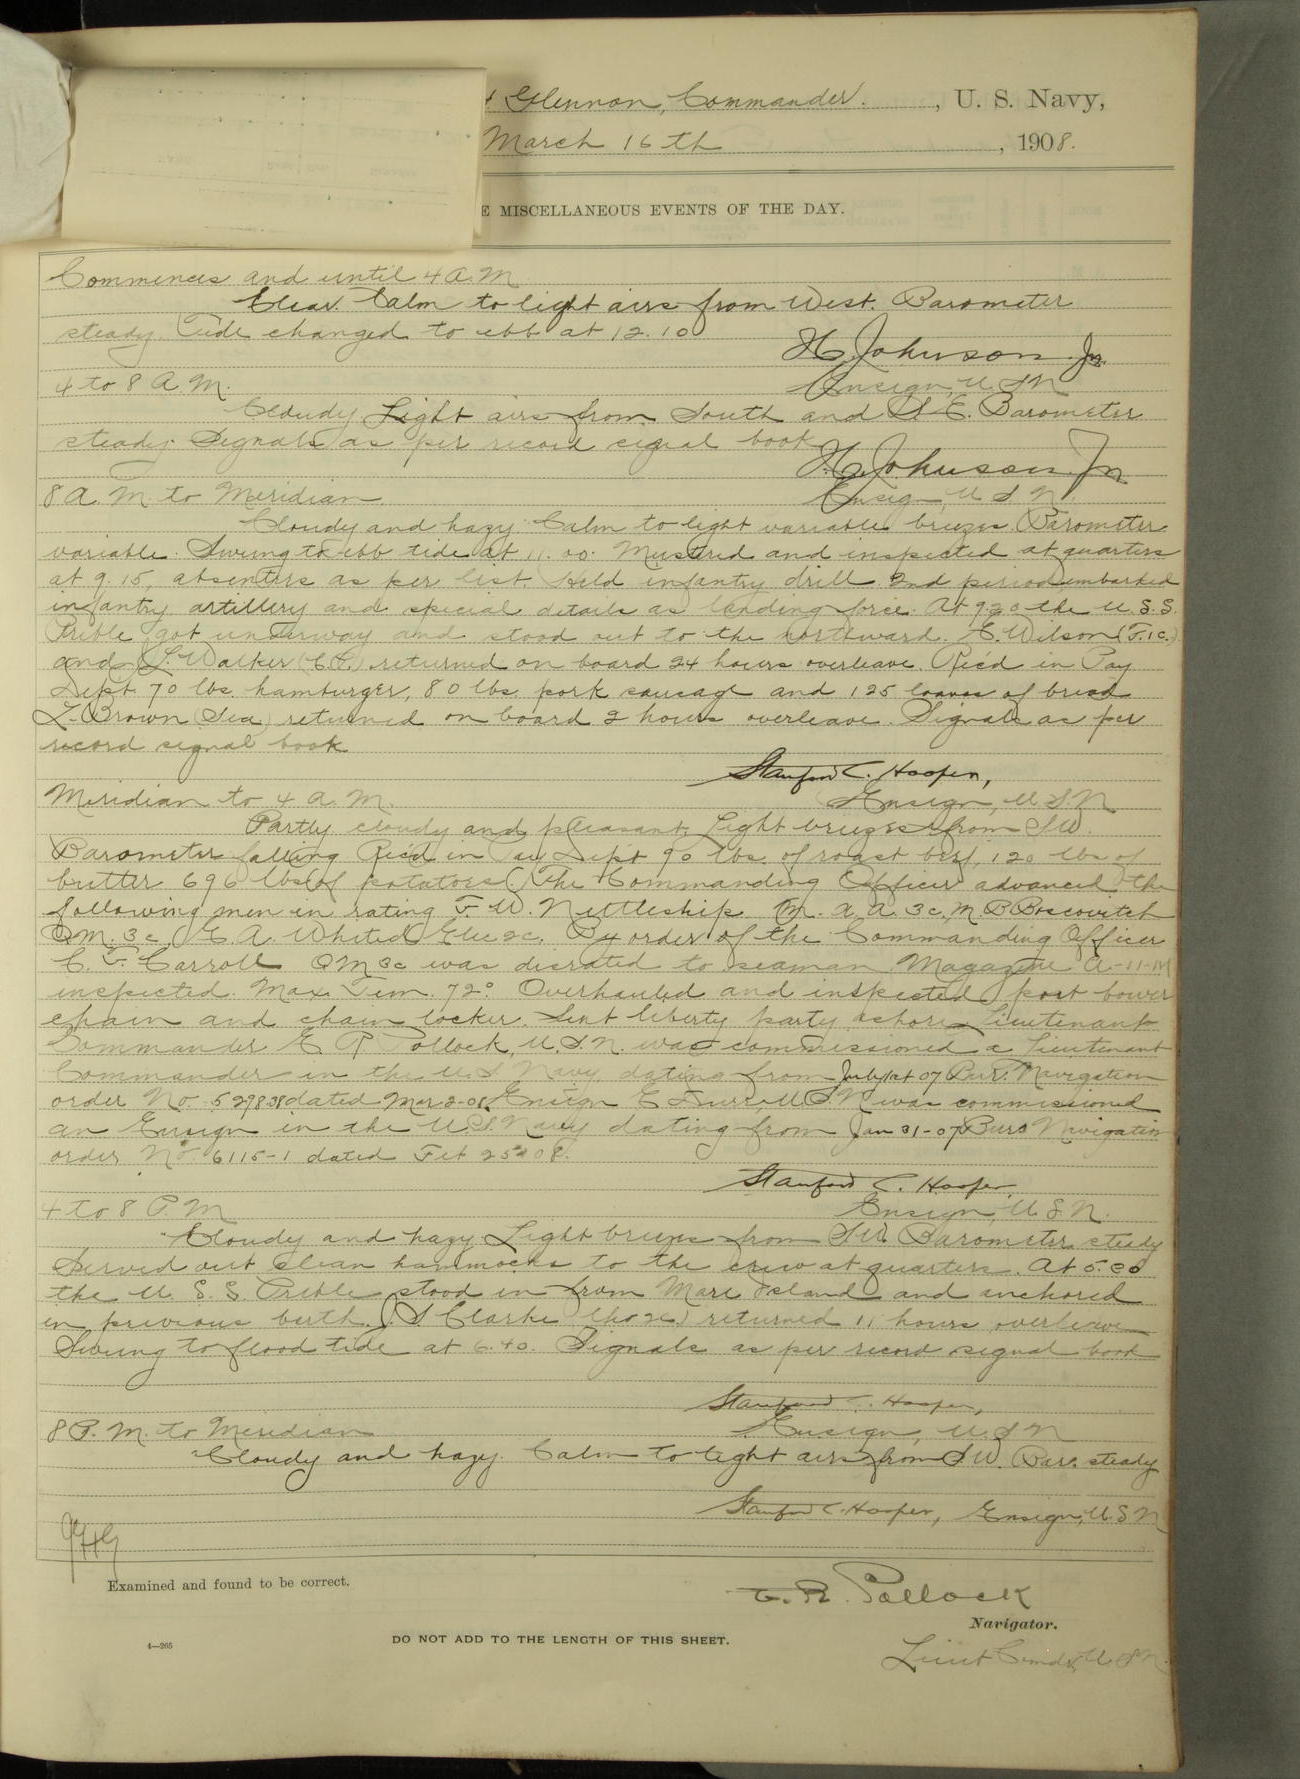 Glennon, Commander. , U. S. Navy,
March 16th , 1908.
MISCELLANEOUS EVENTS OF THE DAY.
Commences and until 4 A.M.
Clear. Calm to light airs from West. Barometer
steady. Tide changed to ebb at 12.10
H. Johnson Jr.
4 to 8 A M. Ensign, U.S.N
Cloudy Light airs from South and S.E. Barometer
steady. Signals as per record signal book
H. Johnson Jr
8 A. M. to Meridian Ensign, U S N.
Cloudy and hazy. Calm to light variable breezes. Barometer
variable. Swung to ebb tide at 11.00. Mustered and inspected at quarters
at 9.15, absentees as per list. Held infantry drill 2nd period, embarked
infantry artillery and special details as landing force. At 9.20 the U.S.S.
Preble got underway and stood out to the northward. C. Wilson (F.1c.)
and L. Walker returned on board 24 hours overleave. Rec'd in Pay
Dept. 70 lbs. hamburger, 80 lbs. pork sausage and 125 loaves of bread
L. Brown (Sea) returned on board 2 hours overleave. Signals as per
record signal book
Stanford C. Hooper,
Meridian to 4 A.M. Ensign, U.S.N
Partly cloudy and pleasant. Light breezes from SW.
Barometer falling Rec'd in Pay Dept 90 lbs. of roast beef, 120 lbs of
butter 696 lbs of potatoes. The Commanding Officer advanced the
following men in rating F. W. Nettleship M. A. A. 3c, M. B Boscovitch
Q M. 3c, E. A. Whited Elec 2c. By order of the Commanding Officer
C. F. Carroll QM 3c was disrated to seaman. Magazine A-11-M
inspected. Max. Tem. 72°. Overhauled and inspected port bower
chain and chain locker. Sent liberty party ashore. Lieutenant
Commander E. R Pollock, U.S.N. was commissioned a Lieutenant
Commander in the U.S Navy dating from July 1st 07 Bur. Navigation
order No. dated Mar 2-08. Ensign E U.S.N was commissioned
an Ensign in the U.S. Navy dating from Jan 31-07 Buro Navigation
order No. 6115-1 dated Feb 25 08.
Stanford C. Hooper,
4 to 8 P.M Ensign, U.S.N.
Cloudy and hazy Light breezes from SW. Barometer steady
Served out clean hammocks to the crew at quarters. At 5.00
the U. S. S. Preble stood in from Mare Island and anchored
in previous berth. S Clarke returned 11 hours overleave
Swung to flood tide at 6.40. Signals as per record signal book
Stanford C. Hooper,
8 P. M. to Meridian Ensign, U. S N
Cloudy and hazy. Calm to light airs from S.W. Bar. steady
Stanford C. Hooper, Ensign, U.S N
Examined and found to be correct.
E. R. Pollock
Navigator.
4—265 DO NOT ADD TO THE LENGTH OF THIS SHEET.
Lieut Comdr, U S N.